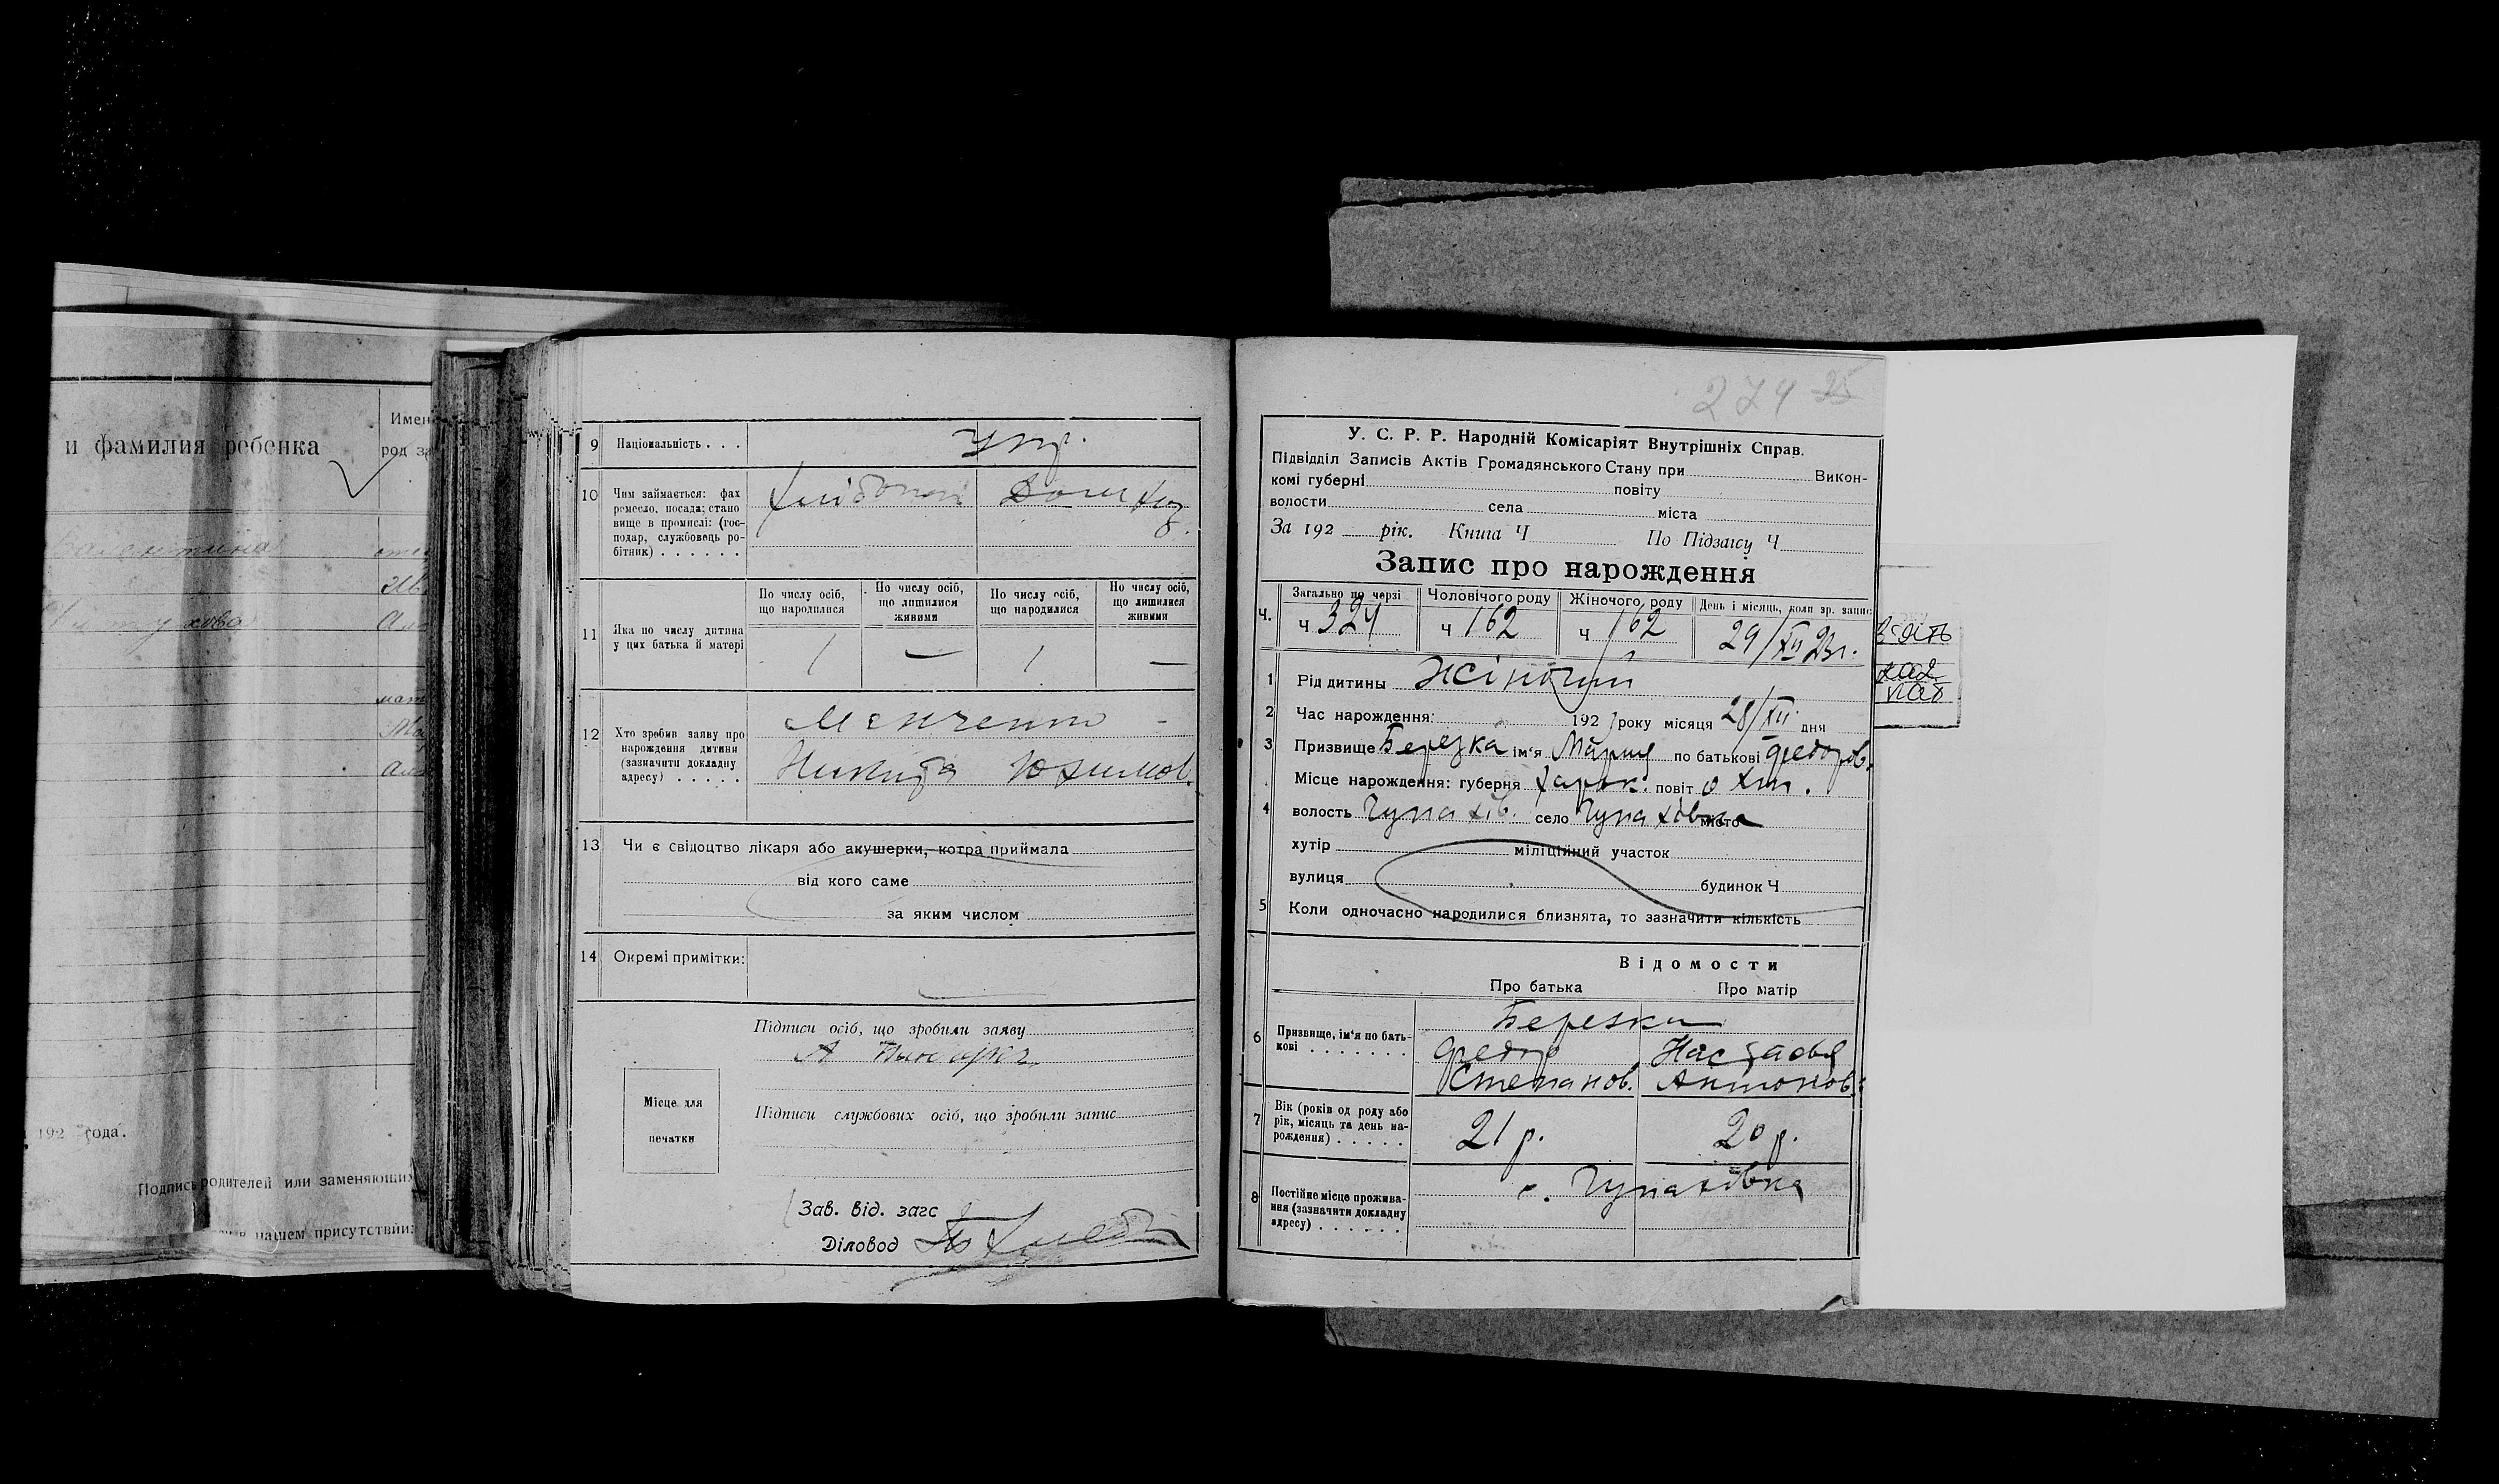 и фамилия ребенка
Имен
род за
192 года.
Подпись родителей или заменяющих
в нашем присутствии:
9 Національність . . . Укр.
10 Чим займається: фах
ремесло, посада; стано
вище в промислі: (гос-
подар, службовець ро-
бітник) . . . . . .
Хлібороб Дом. хаз.
11 Яка по числу дитина
у цих батька й матері
По числу осіб,
що народилися
По числу осіб,
що лишилися
живими
По числу осіб,
що народилися
По числу осіб,
що лишилися
живими
1 — 1 —
12 Хто зробив заяву про
нарождення дитини
(зазначити докладну
адресу) . . . . .
Никита Юхимов.
13 Чи є свідоцтво лікаря або акушерки, котра приймала
від кого саме
за яким числом
14 Окремі примітки:
Підписи осіб, що зробили заяву
Місце для
печатки
Підписи службових осіб, що зробили запис
Зав. від. загс
Діловод
274 25
У. С. Р. Р. Народній Комісаріят Внутрішніх Справ.
Підвідділ Записів Актів Громадянського Стану при Викон-
комі губерні повіту
волости села міста
За 192 рік. Книга Ч По Підзагсу Ч
Запис про нарождення
Ч. Загально по черзі Чоловічого роду Жіночого роду День і місяць, коли зр. запис
Ч 324 Ч 162 Ч 162 29/XII 23 г.
1 Рід дитини Жіночий
2 Час нарождення: 192 3 року місяця 28/XII дня
3 Призвище Березка ім'я Мария по батькові Федоров.
Місце нарождення: губерня Харьк. повіт Охт.
4 волость Чупахів. село Чупахівка місто
хутір міліційний участок
вулиця будинок Ч
5 Коли одночасно народилися близнята, то зазначити кількість
Відомости
Про батька Про матір
6 Призвище, ім'я по бать-
кові . . . . . . .
Березки
Федор Настасья
Степанов. Антонов.
7 Вік (років од роду або
рік, місяць та день на-
рождення) . . . . .
21 р. 20 р.
8 Постійне місце прожива-
ння (зазначити докладну
адресу) . . . . . .
с. Чупахівка